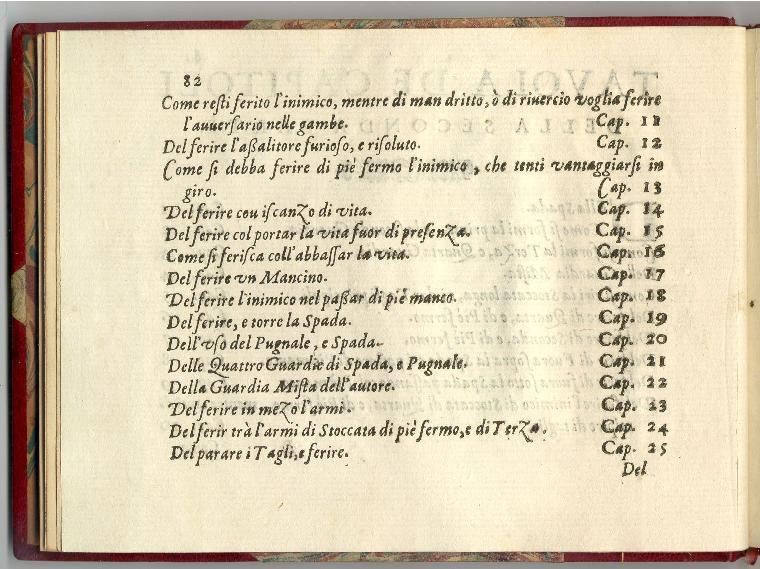 82
Come resti ferito l'inimico, mentre di man dritto, ò di riuercio voglia ferire
l'auuersario nelle gambe. Cap. 11
Del ferire l'aßalitore furioso, e risoluto. Cap. 12
Come si debba ferire di piè fermo l'inimico, che tenti vantaggiarsi in
giro. Cap. 13
Del ferire cou iscanzo di vita. Cap. 14
Del ferire col portar la vita fuor di presenza. Cap. 15
Come si ferisca coll'abbassar la vita. Cap. 16
Del ferire vn Mancino. Cap. 17
Del ferire l'inimico nel paßar di piè manco. Cap. 18
Del ferire, e torre la Spada. Cap. 19
Dell'vso del Pugnale, e Spada. Cap. 20
Delle Quattro Guardie di Spada, e Pugnale. Cap. 21
Della Guardia Mista dell'autore. Cap. 22
Del ferire in mezo l'armi. Cap. 23
Del ferir trà l'armi di Stoccata di piè fermo, e di Terza. Cap. 24
Del parare i Tagli, e ferire. Cap. 25
Del